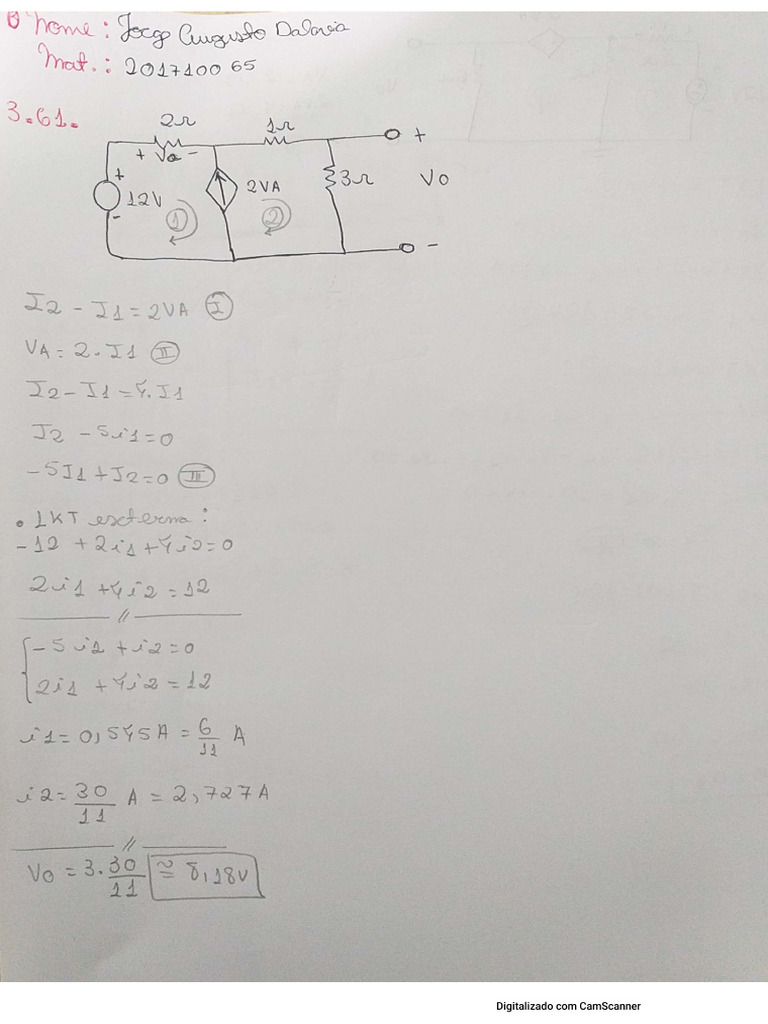 Nome: Jorge Augusto Dalavia
Mat.: 201710065
3.61.
2Ω 1Ω
+ Va - +
+ 12V - 1 2VA 2 3Ω Vo
-
I2 - I1 = 2VA I
VA = 2.I1 II
I2 - I1 = 4.I1
I2 - 5i1 = 0
-5I1 + I2 = 0 III
• LKT externa:
-12 + 2i1 + 4i2 = 0
2i1 + 4i2 = 12
//
-5i1 + i2 = 0
2i1 + 4i2 = 12
i1 = 0,545A = 6/11 A
i2 = 30/11 A = 2,727A
//
Vo = 3.30/11 ≅ 8,18V
Digitalizado com CamScanner